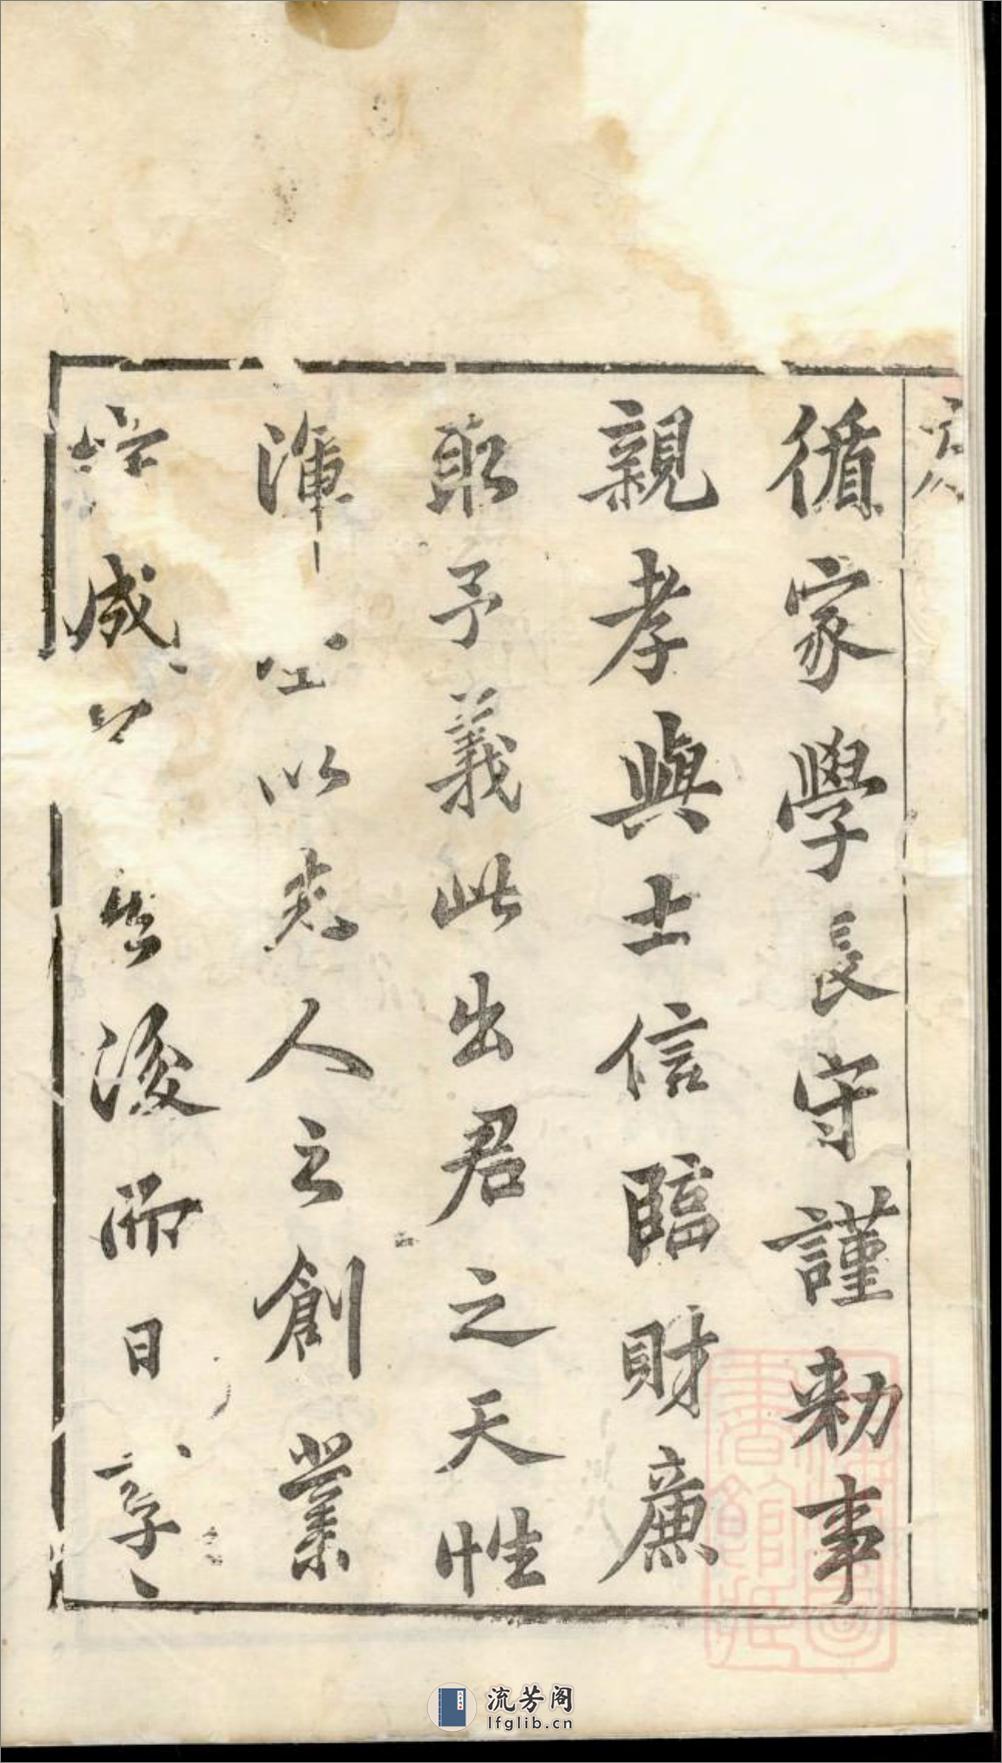 循家學長守謹勅事
親孝與士信臨財廉
取予義此出君之天性
渾以先人之創業
成後而日享
流芳阁
lfglib.cn